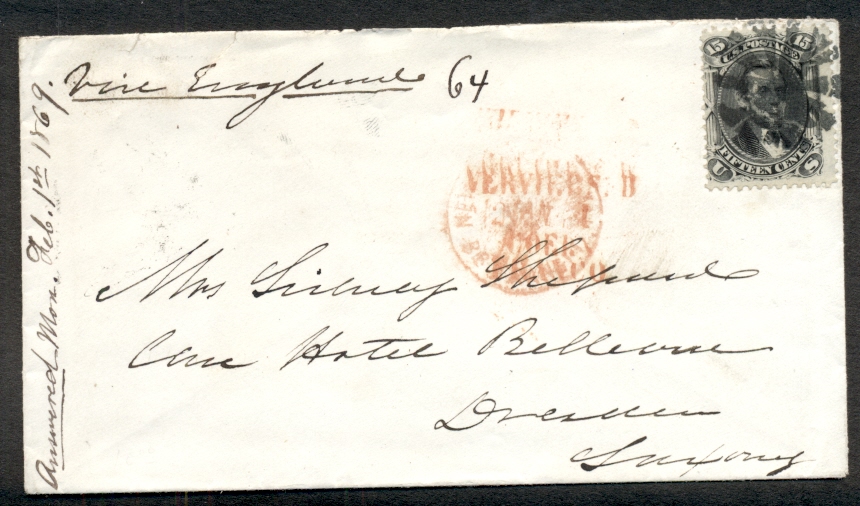 Via England 64
15 U.S. POSTAGE 15
FIFTEEN CENTS
U S
Mrs Sidney Shepard
Care Hotel Bellevue
Dresden
Saxony
Answered Mon. Feb. 1st 1869.